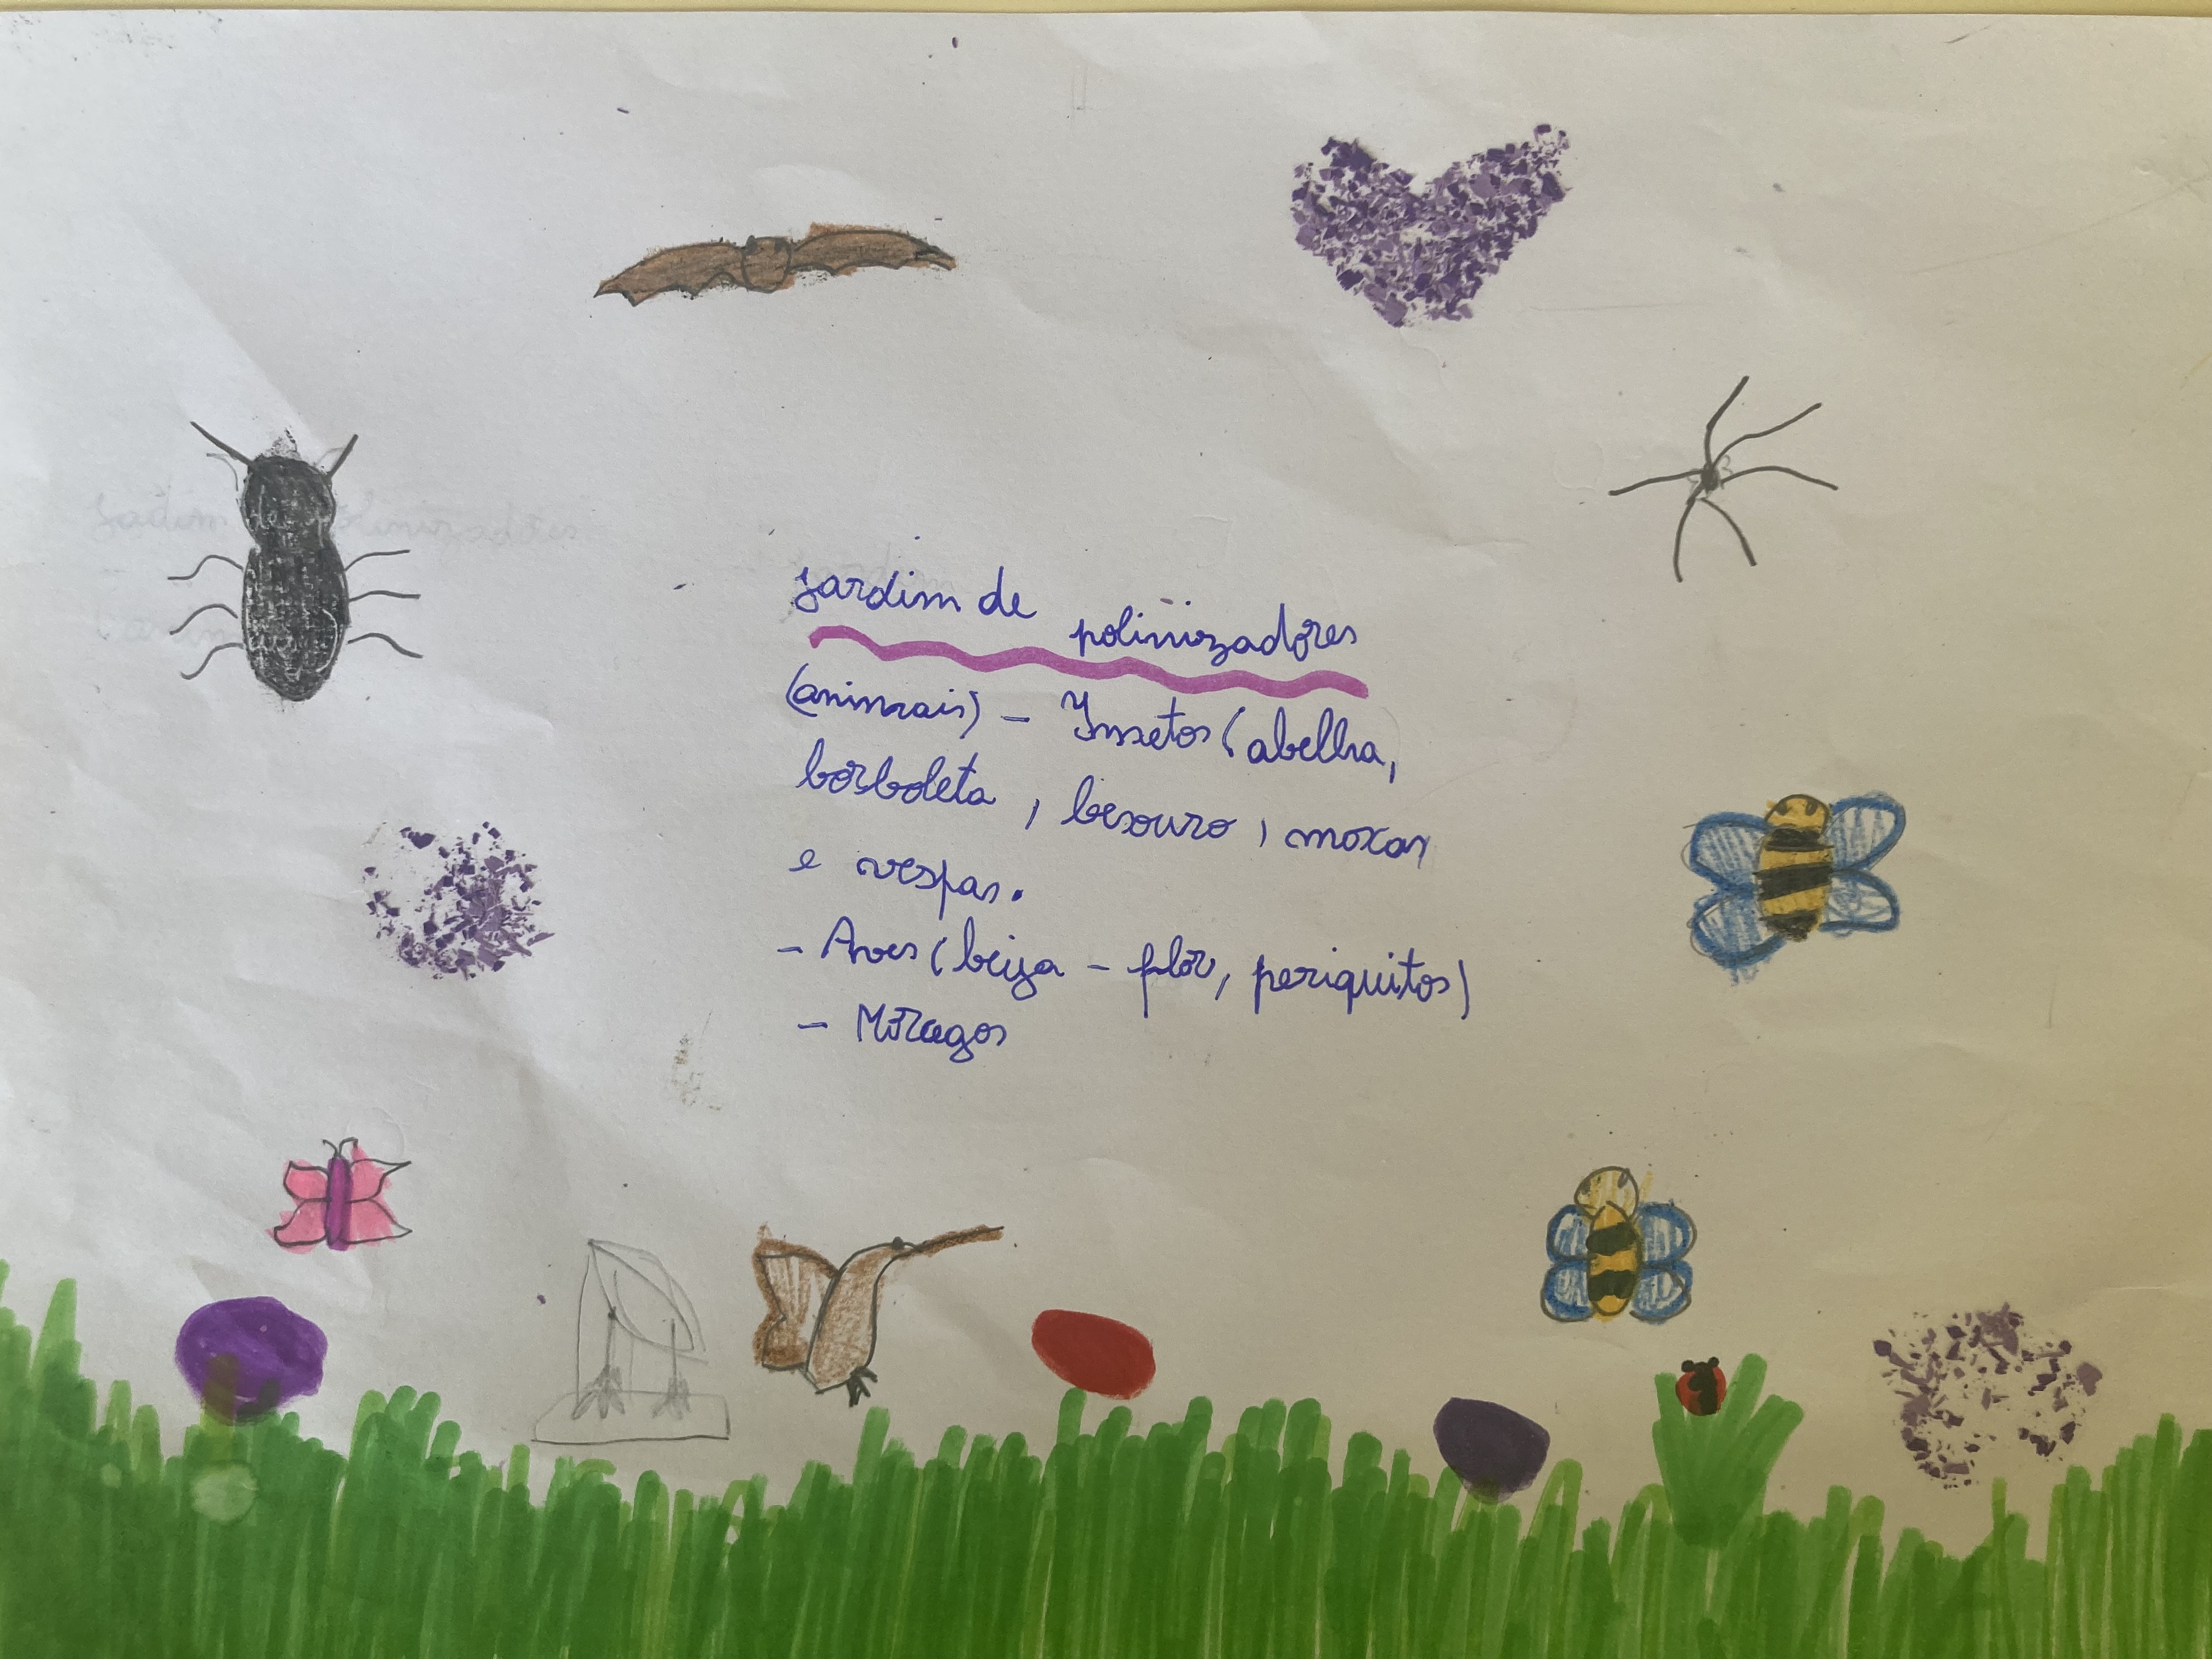 Jardim de polinizadores
(animais) - Insetos (abelha,
borboleta, besouro, moxcas
e vespas.
- Aves (beija - flor, periquitos)
- Morcegos